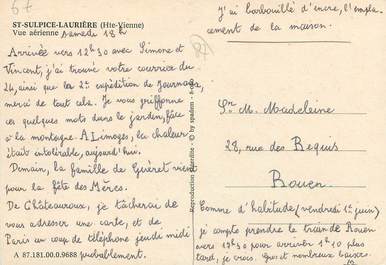 67
ST-SULPICE-LAURIÈRE (Hte-Vienne)
Vue aérienne Samedi 18h
Arrivée vers 12h30 avec Simone et
Vincent, j'ai trouvé votre courrier du
24, ainsi que les 2 expédition de Journaux,
merci de tout cela. Je vous griffonne
ces quelques mots dans le jardin, face
à la montagne. A Limoges, la chaleur
était intolérable, aujourd'hui.
Demain, la famille de Guéret vient
pour la fête des Mères.
De Châteauroux, je tâcherai de
vous adresser une carte, et de
Paris un coup de téléphone jeudi midi
A 87.181.00.0.9688 probablement.
Reproduction interdite - © by spadem
J'ai barbouillé d'encre, l'empla-
cement de la maison.
Sr M. Madeleine
28, rue des Requis
Rouen
Comme d'habitude (vendredi 1er juin)
je compte prendre le train de Rouen
vers 12h50 pour arriver 1h10 plus
tard, je crois. Gros et nombreux baisers.